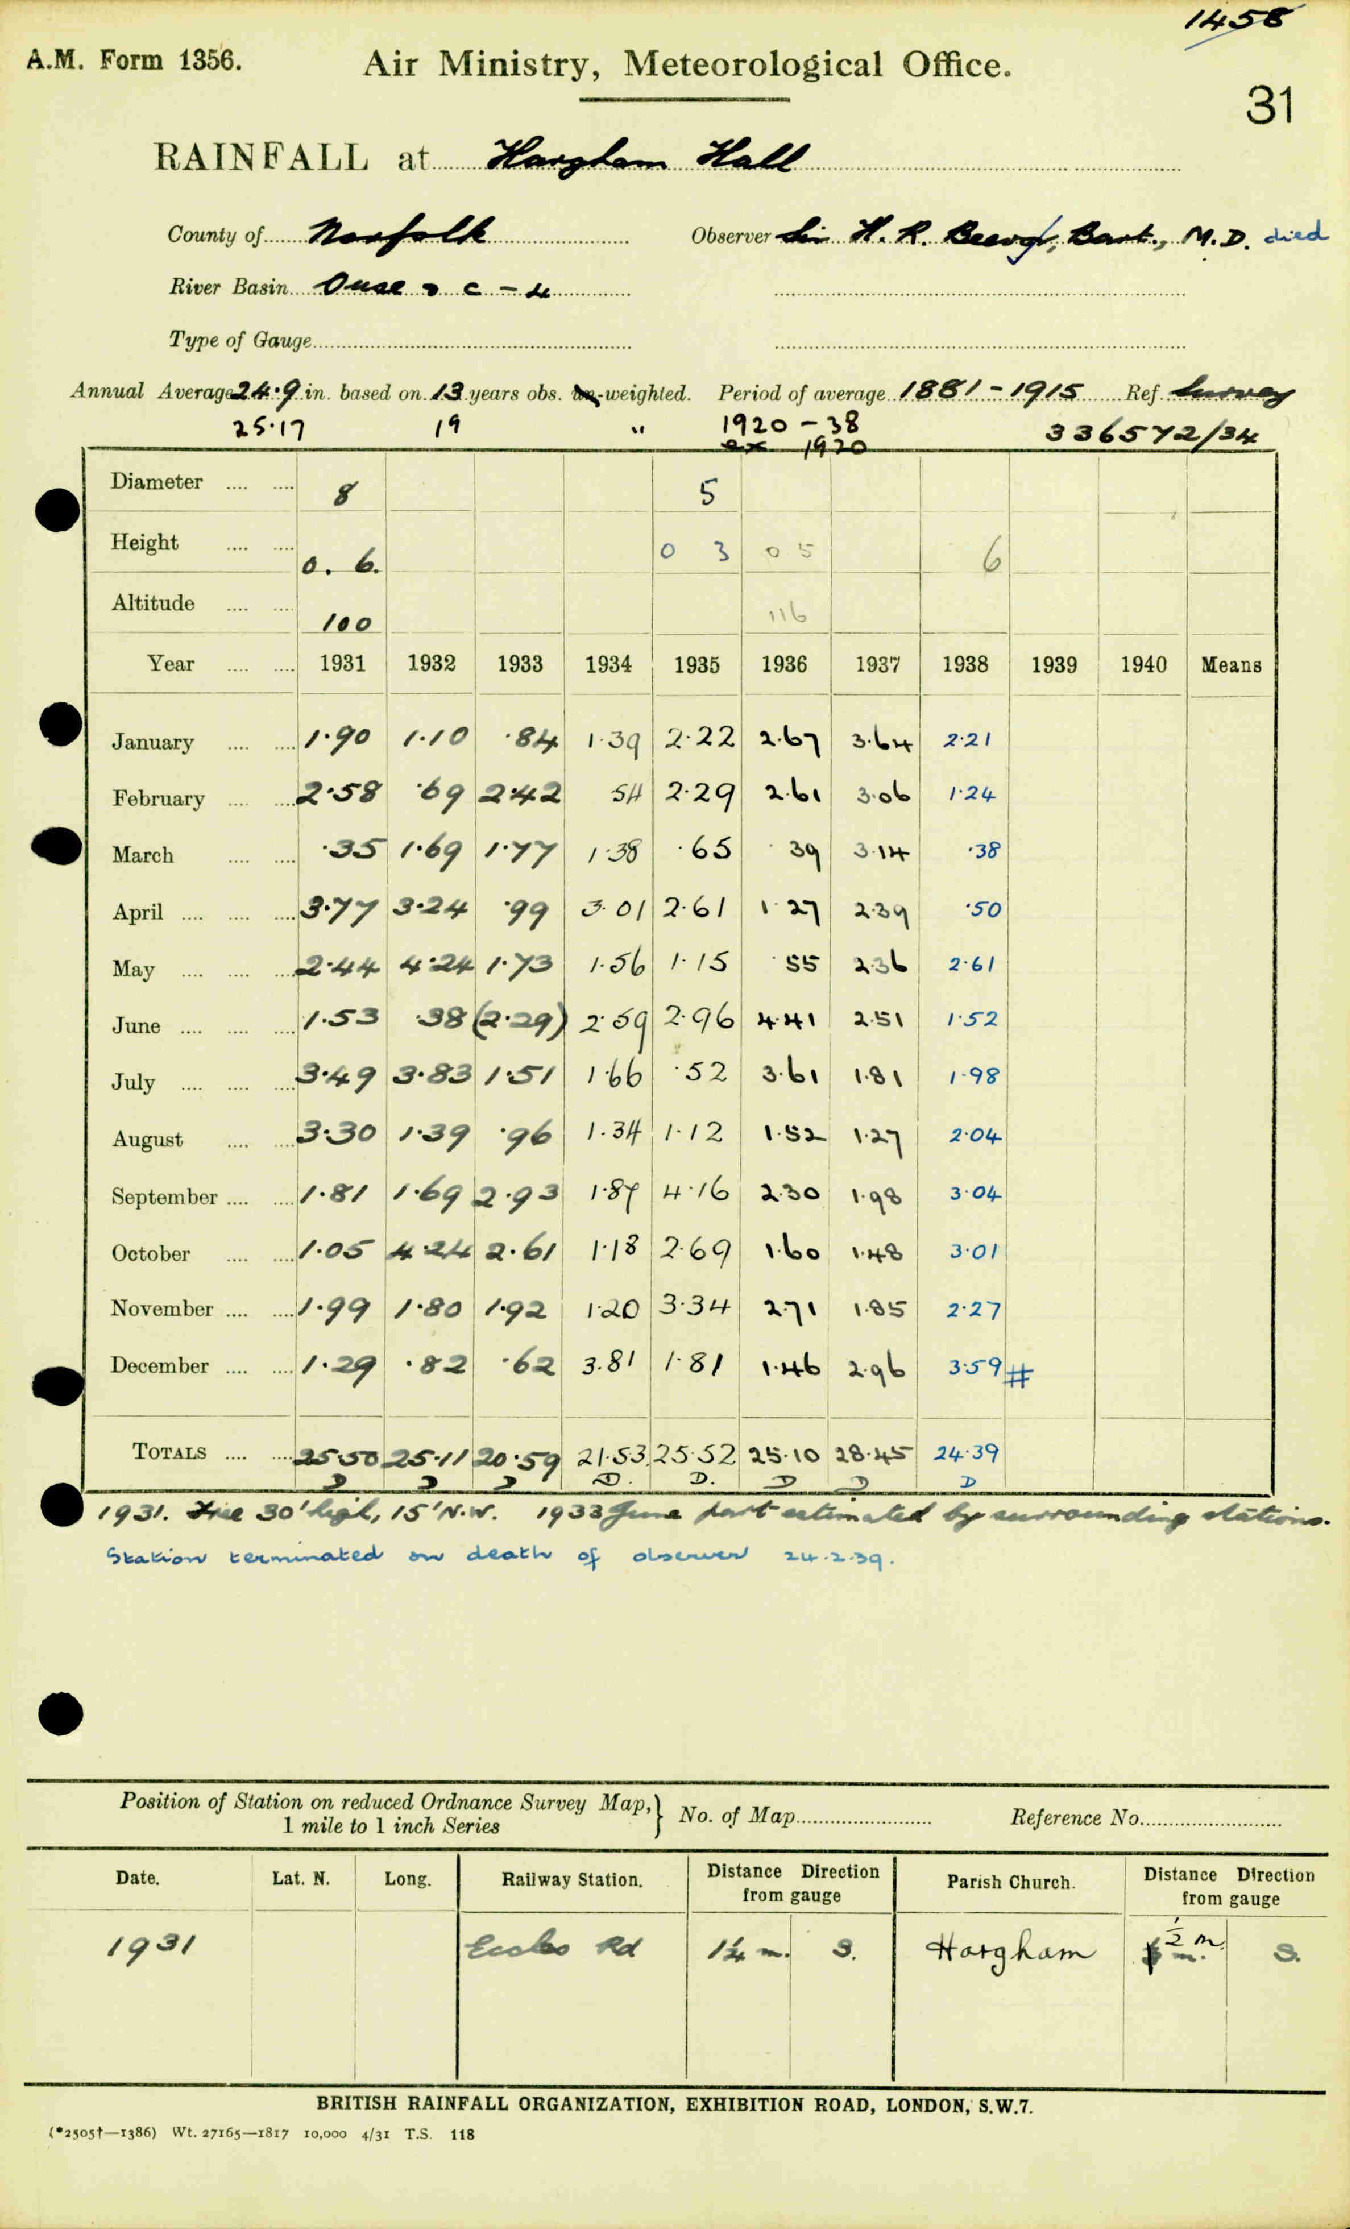 1458
A.M. Form 1356. Air Ministry, Meteorological Office.
31
RAINFALL at Hargham Hall
County of Norfolk Observer Sir H. R. Beevor, Bart., M.D. died
River Basin Ouse C - 4
Type of Gauge
Annual Average 24.9 in. based on 13 years obs. un-weighted. Period of average 1881-1915 Ref. Survey
25.17 19 " 1920 - 38 336572/34
ex 1920
Diameter 8 5
Height 0. 6. 0 3 0 5 6
Altitude 100 116
Year 1931 1932 1933 1934 1935 1936 1937 1938 1939 1940 Means
January 1.90 1.10 .84 1.39 2.22 2.67 3.64 2.21
February 2.58 .69 2.42 54 2.29 2.61 3.06 1.24
March .35 1.69 1.77 1.38 .65 .39 3.14 .38
April 3.77 3.24 .99 3.01 2.61 1.27 2.39 .50
May 2.44 4.24 1.73 1.56 1.15 .55 2.36 2.61
June 1.53 .38 (2.29) 2.59 2.96 4.41 2.51 1.52
July 3.49 3.83 1.51 1.66 .52 3.61 1.81 1.98
August 3.30 1.39 .96 1.34 1.12 1.52 1.27 2.04
September 1.81 1.69 2.93 1.87 4.16 2.30 1.98 3.04
October 1.05 4.24 2.61 1.18 2.69 1.60 1.48 3.01
November 1.99 1.80 1.92 1.20 3.34 2.71 1.85 2.27
December 1.29 .82 .62 3.81 1.81 1.46 2.96 3.59 #
TOTALS 25.50 25.11 20.59 21.53 25.52 25.10 28.45 24.39
D D D D. D. D D D
1931. Tree 30' high, 15' N.W. 1933 June part estimated by surrounding stations.
Station terminated on death of observer 24.2.39.
Position of Station on reduced Ordnance Survey Map, 1 mile to 1 inch Series } No. of Map Reference No.
Date. Lat. N. Long. Railway Station. Distance Direction from gauge Parish Church. Distance Direction from gauge
1931 Eccles Rd 1¼ m. S. Hargham ½ m. S.
BRITISH RAINFALL ORGANIZATION, EXHIBITION ROAD, LONDON, S.W.7.
(*2505†—1386) Wt. 27165—1817 10,000 4/31 T.S. 118